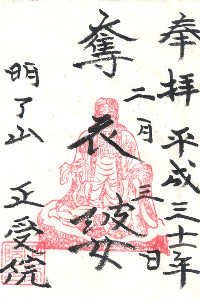 奉拝
平成三十一年
二月三日
奪衣婆
明了山
正受院